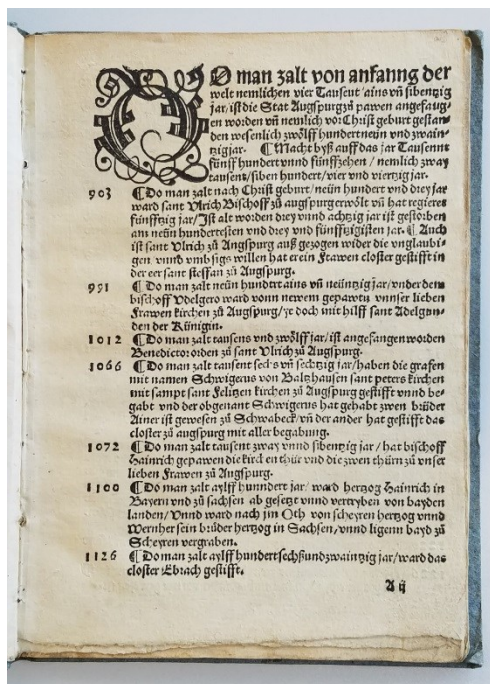 DO man zalt von anfanng der
welt nemlichen vier Tausent / ains vñ sibentzig
jar / ist die Stat Augspurg zů pawen angefang-
en worden vñ neunlich vor Christ geburt gestan-
den wesenlich zwölff hundert neün vnd zwain-
tzig jar. ¶ Macht byß auff das jar Tausennt
fünff hundert vnnd fünffzehen / nemlich zway
tausent / siben hundert / vier vnd viertzig jar.
903 ¶ Do man zalt nach Christ geburt / neün hundert vnd drey jar
ward sant Vlrich Bischoff zů augspurg erwölt vñ hat regieret
fünfftzig jar / Ist alt worden drey vnnd achtzig jar ist gestorben
am neün hundertesten vnd drey vnd fünfftzigisten jar. ¶ Auch
ist sant Vlrich zů Angspurg auß gezogen wider die vnglaubi-
gen vnnd vmb jngs willen hat er ein Frawen closter gestifft in
der eer sant steffan zů Augspurg.
991 ¶ Do man zalt neün hundert ains vñ neüntzig jar / vnder dem
bischoff Vdelgero ward vonn newem gepawtt vnnser lieben
Frawen kirchen zů Augspurg / ye doch mit hilff sant Adelgun-
den der Künigin.
1012 ¶ Do man zalt tausens vnd zwölff jar / ist angefangen worden
Benedictor orden zů sant Vlrich zů Augspurg.
1066 ¶ Do man zalt tausent sechs vñ sechtzig jar / haben die grafen
mit namen Schwigerus von Baltzhausen sant peters kirchen
mit sampt sant Felitzen kirchen zů Augspurg gestifft vnnd be-
gabt vnd der obgenant Schwigerus hat gehabt zwen brüder
Ainer ist gewesen zů Schwabeck / vñ der ander hat gestifft das
closter zů augspurg mit aller begabung.
1072 ¶ Do man zalt tausent zway vnnd sibentzig jar / hat bischoff
Hainrich gepawen die kirchen thür vnd die zwen thürn zů vnser
lieben Frawen zů Augspurg.
1100 ¶ Do man zalt aylff hunndert jar / ward hertzog Hainrich in
Bayern vnd zů sachsen ab gesetzt vnnd vertryben von bayden
landen / Vnnd ward nach jm Oth von scheyren hertzog vnnd
Wernher sein brüder hertzog in Sachsen / vnnd ligenn bayd zů
Scheyren vergraben.
1126 ¶ Do man zalt aylff hundert sechß und zwaintzig jar / ward das
closter Ebrach gestifft.
A ij